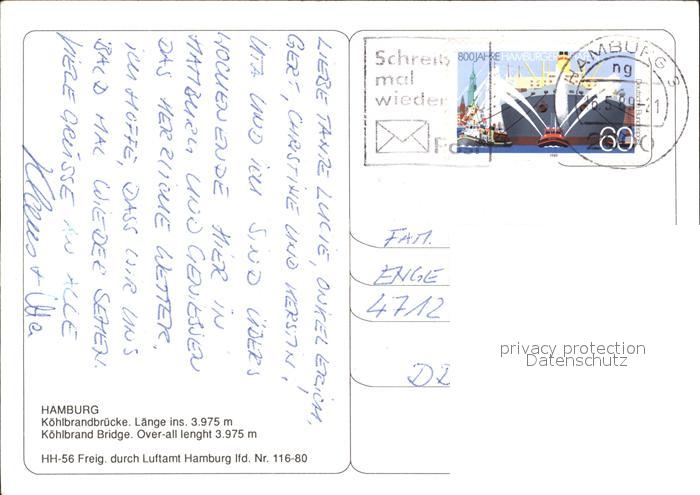 LIEBE TANTE LUCIE, ONKEL ERICH,
GERT, CHRISTINE UND KERSTIN!
UTA UND ICH SIND ÜBERS
WOCHENENDE HIER IN
HAMBURG UND GENIESSEN
DAS HERRLICHE WETTER.
ICH HOFFE, DASS WIR UNS
BALD MAL WIEDER SEHEN.
VIELE GRÜSSE AN ALLE
Klaus + Uta
Schreib
mal
wieder
Post
800 JAHRE HAMBURGER
60
HAMBURG
ng
FAM.
ENGE
4712
privacy protection
Datenschutz
HAMBURG
Köhlbrandbrücke. Länge ins. 3.975 m
Köhlbrand Bridge. Over-all lenght 3.975 m
HH-56 Freig. durch Luftamt Hamburg lfd. Nr. 116-80